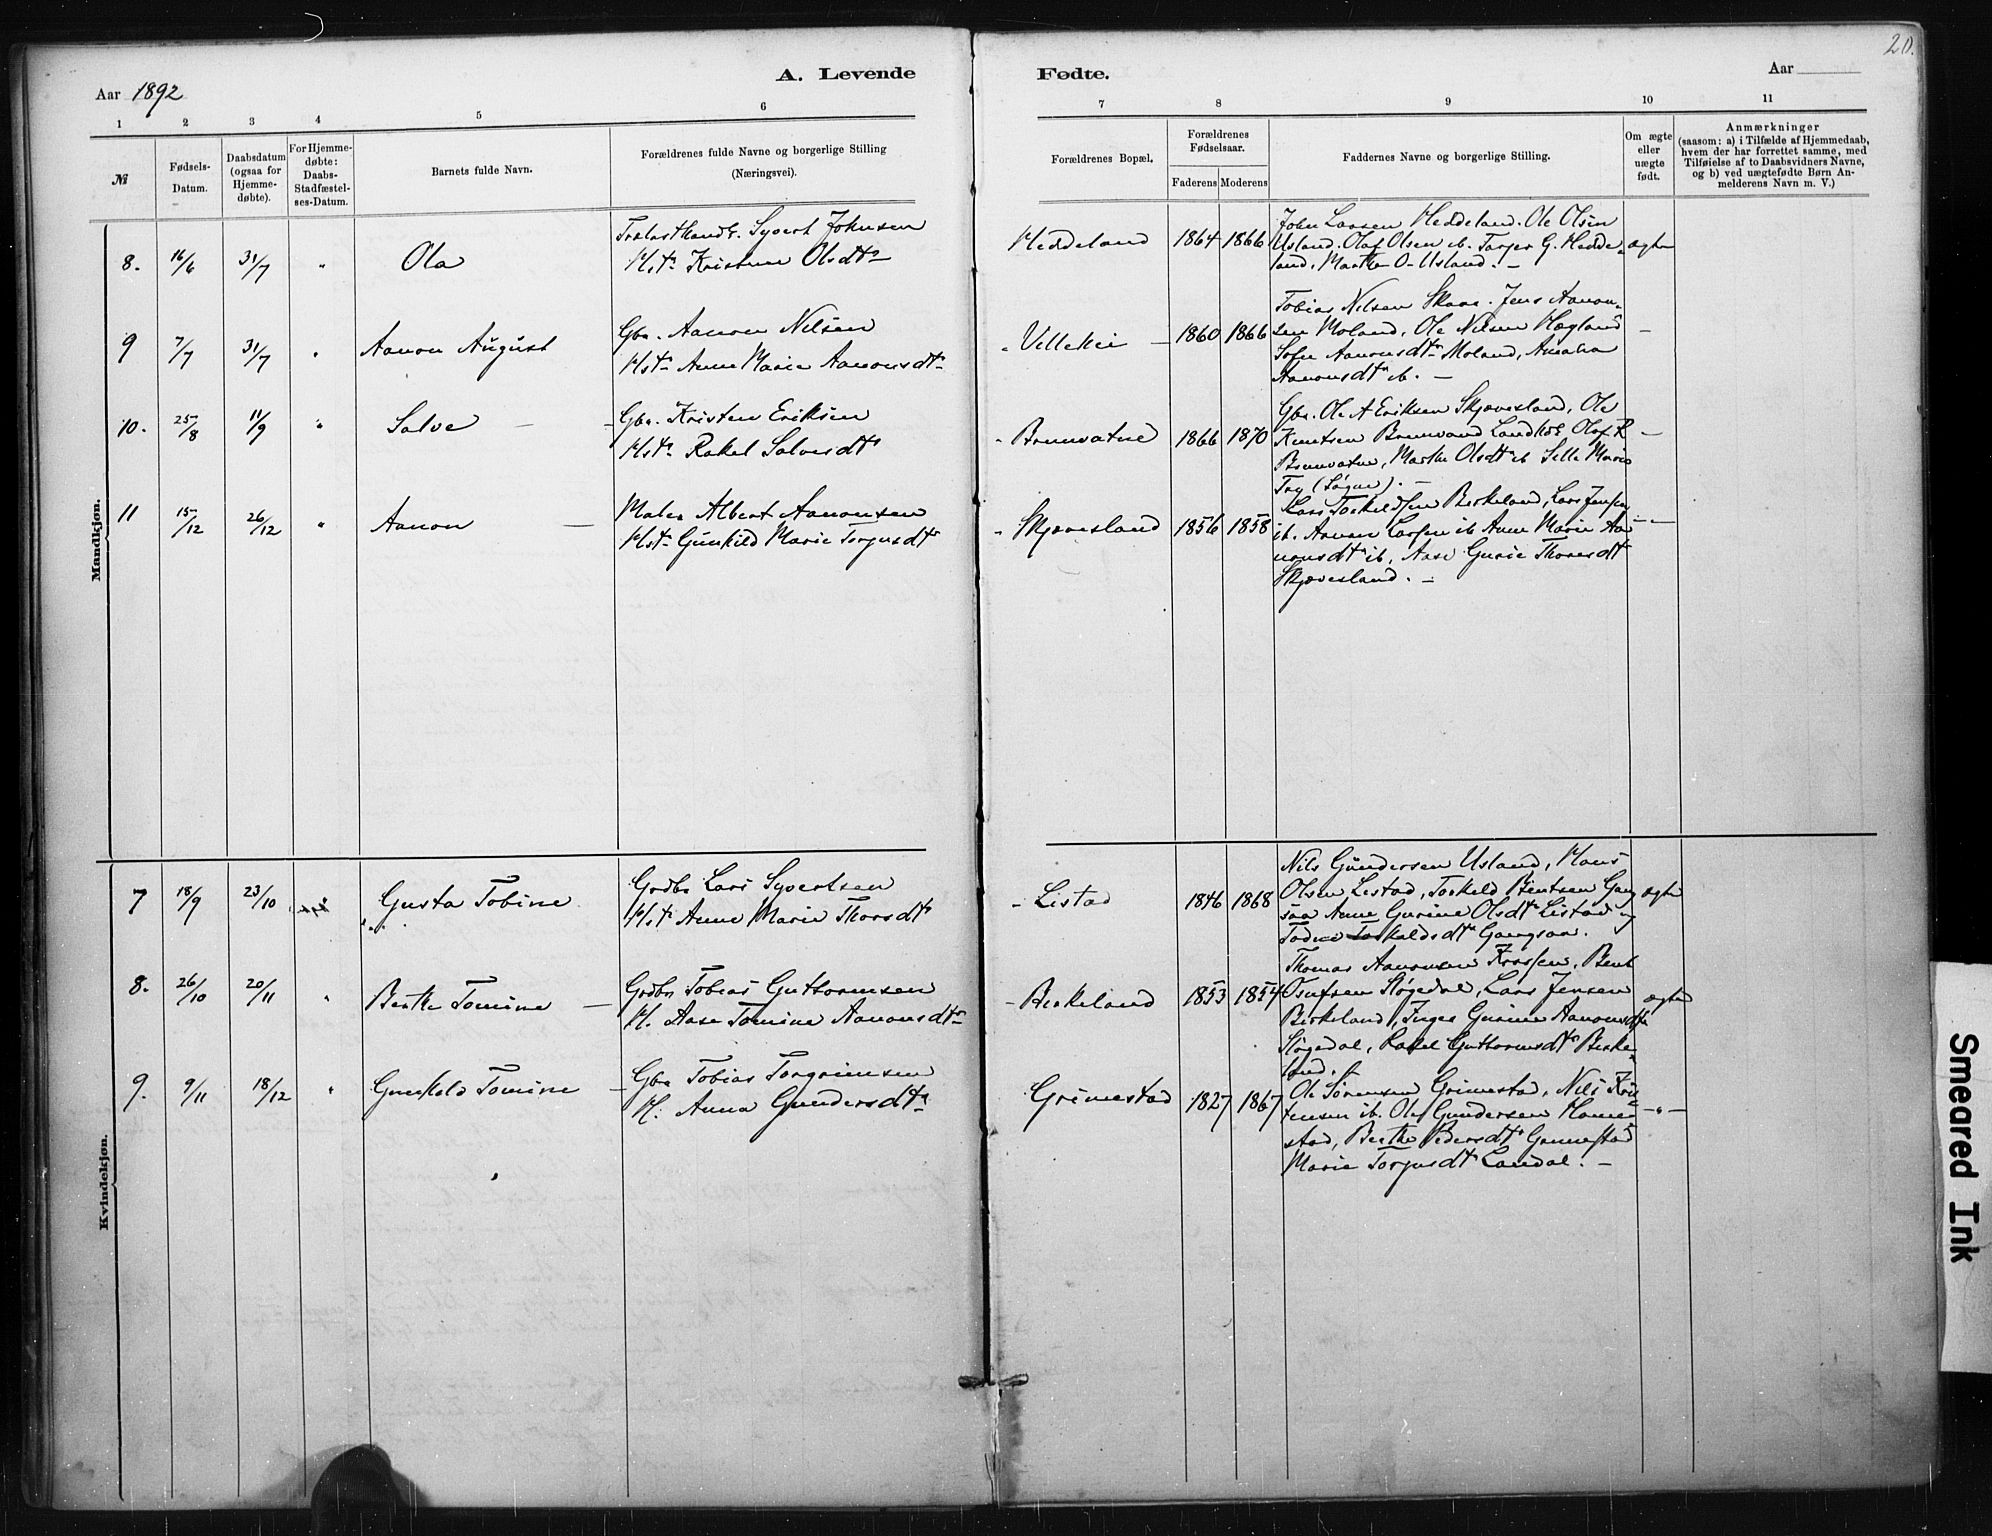 20.
A. Levende
Fødte.
Aar 1892
Aar
1 2 3 4 5 6 7 8 9 10 11
№
Fødsels-
Datum.
Daabsdatum
(ogsaa for
Hjemme-
døbte).
For Hjemme-
døbte:
Daabs-
Stadfæstel-
ses-Datum.
Barnets fulde Navn.
Forældrenes fulde Navne og borgerlige Stilling
(Næringsvei).
Forældrenes Bopæl.
Forældrenes
Fødselsaar.
Faderens Moderens
Faddernes Navne og borgerlige Stilling.
Om ægte
eller
uægte
født.
Anmærkninger
(saasom: a) i Tilfælde af Hjemmedaab,
hvem der har forrettet samme, med
Tilføielse af to Daabsvidners Navne,
og b) ved uægtefødte Børn An-
melderens Navn m. V.)
Mandkjøn.
8. 16/6 31/7 " Ola
Syvert Johnsen
Hstr Kristine Olsdtr
Heddeland 1864 1866
John Larsen Heddeland. Ole Olsen
Usland. Olaf Olsen ib. Torjer G. Hedde-
land, Marthe O. Usland. —
ægte
9 7/7 31/7 " Aanon August
Gbr. Aanon Nilsen
Hstr Anne Marie Aanonsdtr
1860 1866
Tobias Nilsen Skaar. Jens Aanon-
sen Moland, Ole Nilsen Hægland
Sofie Aanonsdtr Moland, Amalia
Aanonsdtr ib. —
—
10. 25/8 11/9 " Salve —
Gbr. Kristen Eriksen
Hstr Rakel Salvesdtr
Brunvatne 1866 1870
Gbr. Ole A Eriksen Skjævesland, Ole
Knutsen Brunvand Olaf K
Brunvatne, Marthe Olsdtr ib Sille Marie
Try (Søgne). —
—
11 15/12 26/12 " Aanon —
Maler Albert Aanonsen
Hstr Gunhild Marie Torjusdtr
Skjævesland 1856 1858
Lars Torkeldsen Birkeland, Lars Jensen
ib. Aanon Larsen ib Anne Marie Aa-
nonsdtr ib, Aase Gurie Thoresdtr
Skjævesland. —
— " —
Kvindekjøn.
7 18/9 23/10 Gusta Tobine
Grdbr Lars Syvertsen
Hstr Anne Marie Thorsdtr
Listad 1846 1868
Nils Gundersen Usland, Hans
Olsen Listad, Torkeld Bentsen Gang-
saa Anne Gurine Olsdtr Listad og
Torkeldsdtr Gangsaa.
ægte
8. 26/10 20/11 " Berthe Tomine —
Grdbr Tobias Guttormsen
H. Aase Tomine Aanonsdtr
Birkeland 1853 1854
Thomas Aanonsen Fossen, Bent
Osufsen Støgedal, Lars Jensen
Birkeland, Inger Gurine Aanonsdtr
Støgedal, Rakel Guttormsdtr Birke-
land. —
ægte
9. 9/11 18/12 " Gunhild Tomine —
Gbr Tobias Torgrimsen
H. Anna Gundersdtr
Grimestad 1827 1867
Ole Sørensen Grimestad, Nils Kris-
tensen ib. Ole Gundersen Home-
stad, Berthe Pedersdtr Grimestad
Marie Torjusdtr Landal. —
— " —
Smeared Ink